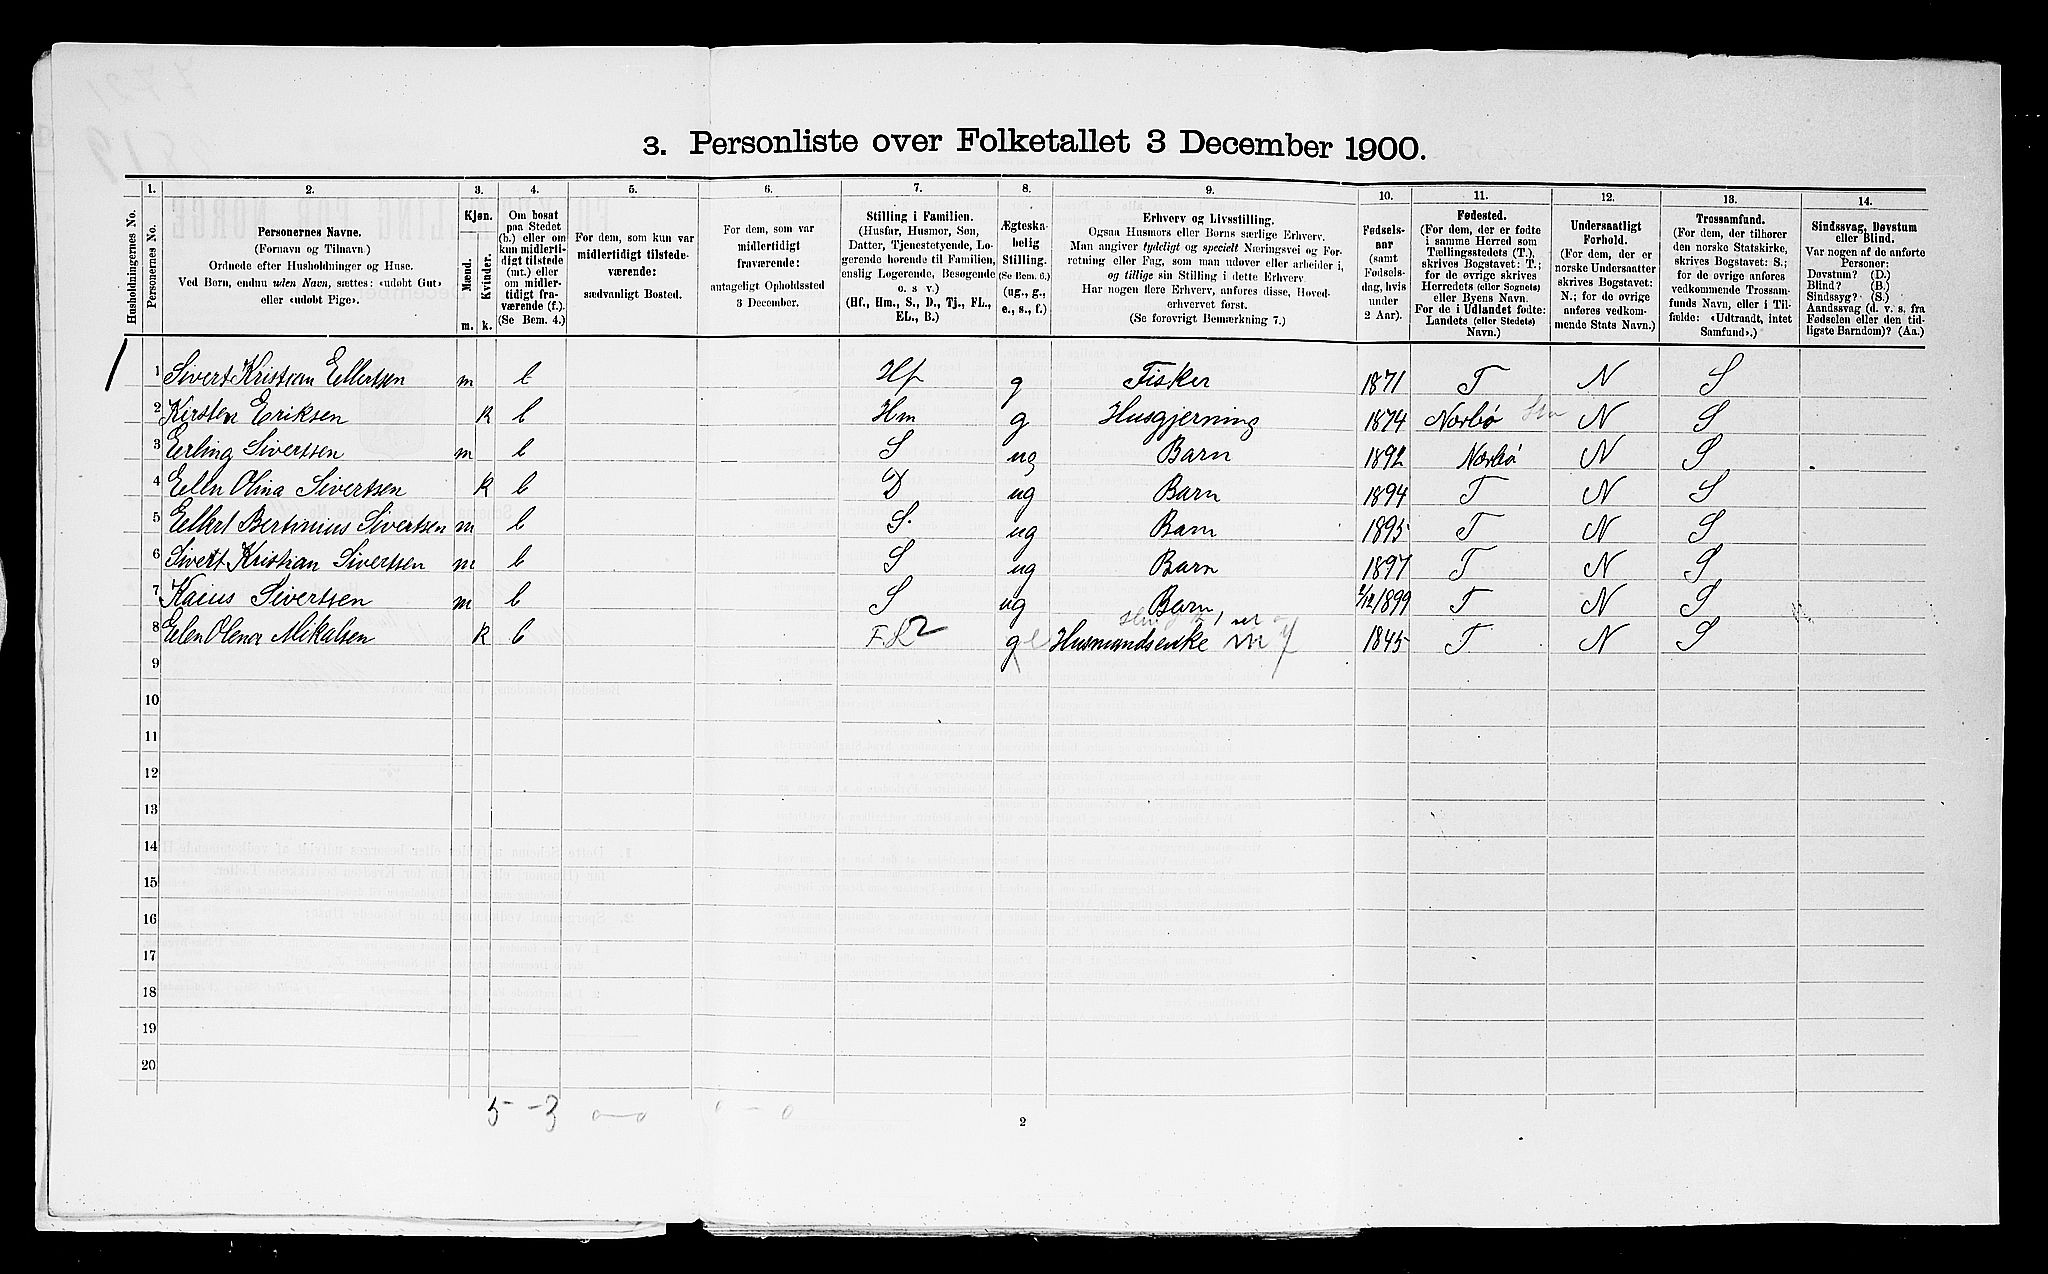 3. Personliste over Folketallet 3 December 1900.
1. 2. 3. 4. 5. 6. 7. 8. 9. 10. 11. 12. 13. 14.
Husholdningernes No.
Personernes No.
Personernes Navne.
(Fornavn og Tilnavn.)
Ordnede efter Husholdninger og Huse.
Ved Børn, endnu uden Navn, sættes: «udøbt Gut»
eller «udøbt Pige».
Kjøn.
Mænd.
Kvinder.
m. k.
Om bosat
paa Stedet
(b.) eller om
kun midlerti-
digt tilstede
(mt.) eller
om midler-
tidigt fra-
værende (f.).
(Se Bem. 4.)
For dem, som kun var
midlertidigt tilstede-
værende:
sædvanligt Bosted.
For dem, som var
midlertidigt
fraværende:
antageligt Opholdssted
3 December.
Stilling i Familien.
(Husfar, Husmor, Søn,
Datter, Tjenestetyende, Lo-
gerende hørende til Familien,
enslig Logerende, Besøgende
o. s v.)
(Hf., Hm., S., D., Tj., FL.,
EL., B.)
Ægteska-
belig
Stilling.
(Se Bem. 6.)
(ug., g.,
e., s., f.)
Erhverv og Livsstilling.
Ogsaa Husmors eller Børns særlige Erhverv.
Man angiver tydeligt og specielt Næringsvei og For-
retning eller Fag, som man udøver eller arbeider i,
og tillige sin Stilling i dette Erhverv.
Har nogen flere Erhverv, anføres disse, Hoved-
erhvervet først.
(Se forøvrigt Bemærkning 7.)
Fødsels-
aar
(samt
Fødsels-
dag, hvis
under
2 Aar).
Fødested.
(For dem, der er fødte
i samme Herred som
Tællingsstedets (T.),
skrives Bogstavet: T.;
for de øvrige skrives
Herredets (eller Sognets)
eller Byens Navn.
For de i Udlandet fødte:
Landets (eller Stedets)
Navn.)
Undersaatligt
Forhold.
(For dem, der er
norske Undersaatter
skrives Bogstavet:
N.; for de øvrige
anføres vedkom-
mende Stats Navn.)
Trossamfund.
(For dem, der tilhører
den norske Statskirke,
skrives Bogstavet: S.;
for de øvrige anføres
vedkommende Trossam-
funds Navn, eller i Til-
fælde: «Udtraadt, intet
Samfund».)
Sindssvag, Døvstum
eller Blind.
Var nogen af de anførte
Personer:
Døvstum? (D.)
Blind? (B.)
Sindssyg? (S.)
Aandssvag (d. v. s. fra
Fødselen eller den tid-
ligste Barndom)? (Aa.)
1 Sivert Kristian Ellertsen m b Hf g Fisker 1871 T N S
2 Kirsten Eriksen k b Hm g Husgjerning 1874 Nærbø N S
3 Erling Sivertsen m b S ug Barn 1892 Nærbø N S
4 Ellen Olina Sivertsen k b D ug Barn 1894 T N S
5 Ellert Bertinius Sivertsen m b S. ug Barn 1895 T N S
6 Sivert Kristian Sivertsen m b S ug Barn 1897 T N S
7 Kaius Sivertsen m b S ug Barn 1899 T N S
8 Ellen Olenor Mikalsen k b FL g e Husmandsenke 1845 T N S
9
10
11
12
13
14
15
16
17
18
19
20
5 - 3 0-0 0-0
2